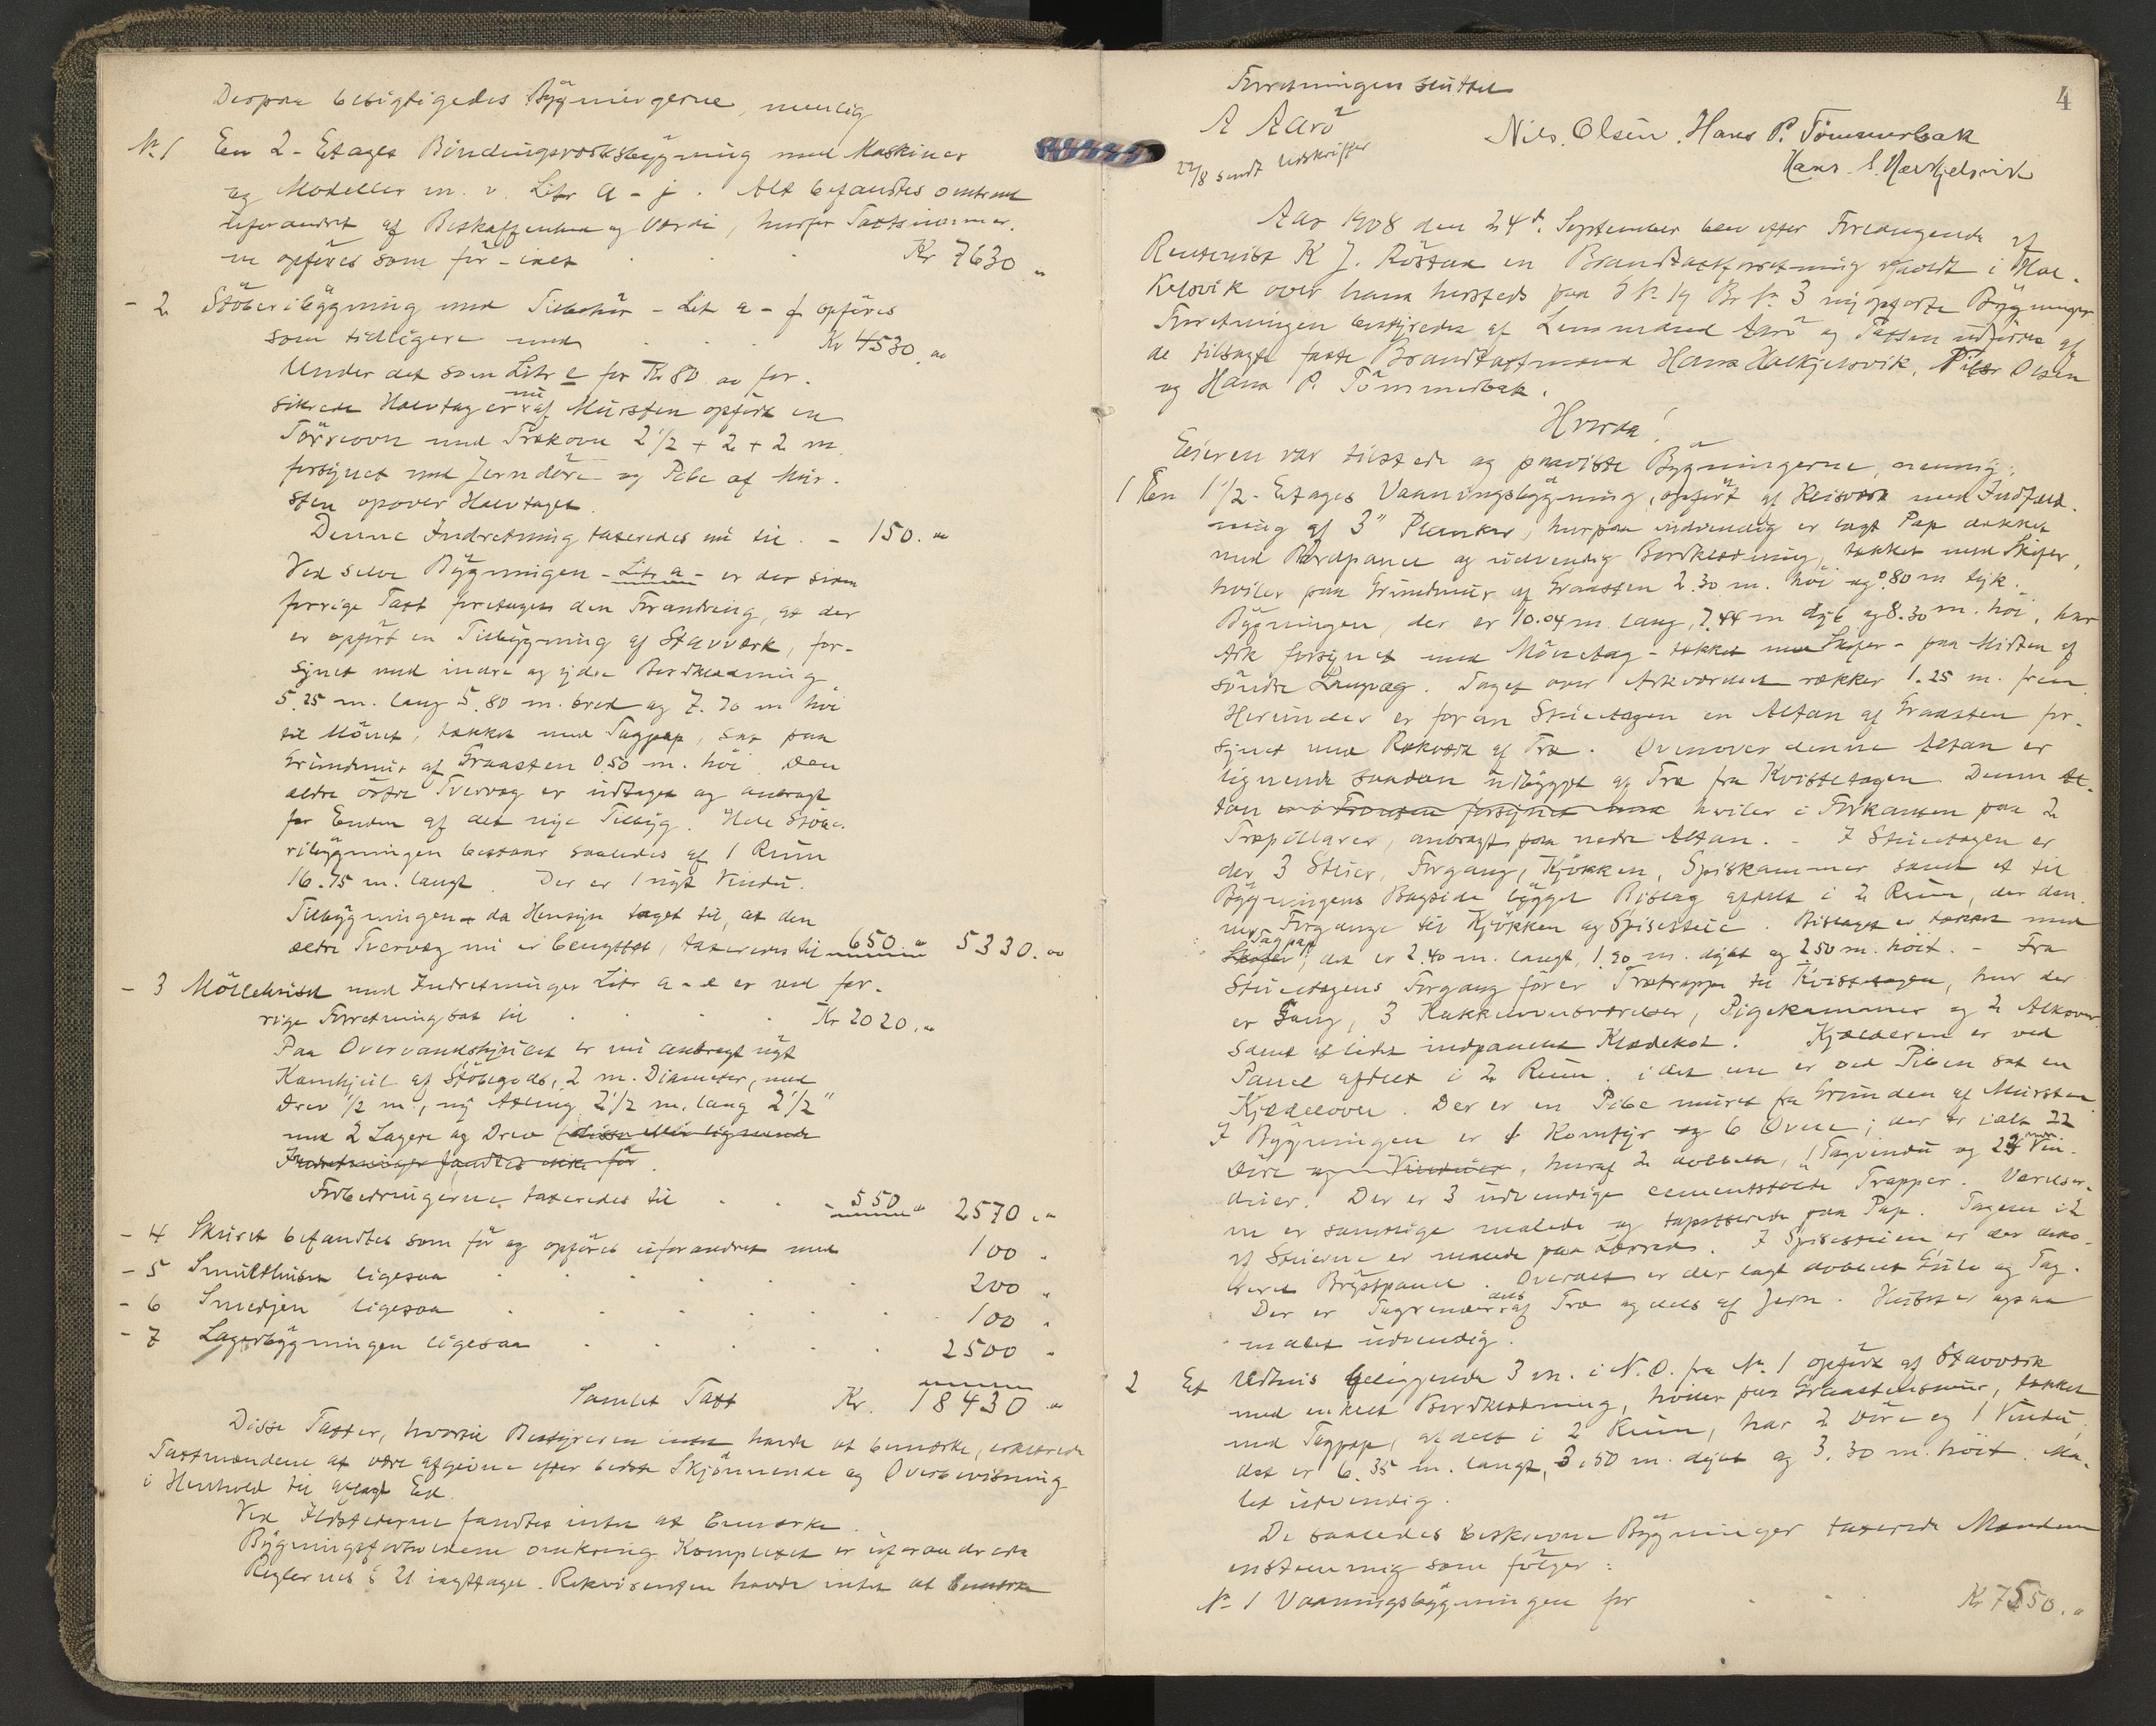 Derpaa besigtigedes Bygningerne, nemlig
No 1 En 2-Etages Bindingsverksbygning med Maskiner
og Modeller m. v. Litr a - j. Alt befandtes omtrent
uforandret af Beskaffenhed og Værdi, hvorfor Taxtsummer-
ne opføres som før - ialt Kr 7630 "
- 2 Støberibygning med Tilbehør - Lit a - f opføres
som tidligere med Kr 4530 "
Under det som Litr e for Kr 80 " for-
sikrede Halvtag er nu af Mursten opført en
Tørreovn med Trækovn 2 1/2 + 2 + 2 m
forsynet med Jerndøre og Pibe af Mur-
sten opover Halvtaget.
Denne Indretning taxeredes nu til - 150. "
Ved selve Bygningen - Litr a - er der siden
forrige Taxt foretagen den Forandring, at der
er opført en Tilbygning af Stavværk, for-
synet med indre og ydre Bordklædning
5.25 m. lang 5.80 m. bred og 7.70 m høi
til Mønet, tækket med Tagpap, sat paa
Grundmur af Graasten 0.50 m. høi. Den
ældre østre Tvervæg er udtagen og anbragt
for Enden af det nye Tilbyg. Hele Støbe-
ribygningen bestaar saaledes af 1 Rum
16.75 m. langt. Der er 1 nyt Vindu.
Tilbygningen - da Hensyn taget til, at den
ældre Tvervæg nu er benyttet, taxeredes til 650. " 5330. "
- 3 Møllehuset med Indretninger Litr a - e er ved for-
rige Forretning sat til Kr 2020. "
Paa Overvandshjulet er nu anbragt nyt
Kamhjul af Støbegods, 2 m. Diameter, med
Drev 1/2 m., ny Axling 2 1/2 m. lang 2 1/2"
med 2 Lagere og Drev (disse eller lignende
Indretninger fandtes ikke før.
Forbedringerne taxeredes til - 550 " 2570. "
- 4 Skuret befandtes som før og opføres uforandret med 100 "
- 5 Smulthuset ligesaa 200 "
- 6 Smedjen ligesaa 100 "
- 7 Lagerbygningen ligesaa 2500 "
Samlet Taxt Kr. 18430 "
Disse Taxter, hvortil Bestyreren intet havde at bemærke, erklærede
Taxtmændene at være afgivne efter bedste Skjønnende og Overbevisning
i Henhold til aflagt Ed.
Ved Ildstederne fandtes intet at bemærke.
Bygningsforholdene omkring Komplexet er uforandrede
Reglernes § 21 iagttaget. Rekvirenten havde intet at bemærke
4
Forretningen sluttet
A Aarö
Nils. Olsen. Hans P. Tömmerbak
22/8 sendt Udskrifter
Hans. E. Hælkjelsvik
Aar 1908 den 24de September blev efter Forlangende af
Rentenist K J. Röstad en Brandtaxtforretning afholdt i Hæl-
kelsvik over hans hersteds paa G No 19 Br No 3 nyopførte Bygninger
Forretningen bestyredes af Lensmand Aarö og Taxten udførtes af
de tilsagte faste Brandtaxtmænd Hans Hælkjelsvik, Nils Olsen
og Hans P. Tömmerbak.
Hvorda!
Eieren var tilstede og paaviste Bygningerne, nemlig:
1 En 1 1/2-Etages Vaaningsbygning, opført af Reisværk med Indfæld-
ning af 3" Planker, hvorpaa indvendig er lagt Pap dækket
med Bordpanel og udvendig Bordklædning, tækket med Skifer,
hviler paa Grundmur af Graasten 2.30 m. høi og 0.80 m tyk.
Bygningen, der er 10.04 m. lang, 7.44 m dyb og 8.30 m. høi, har
Ark forsynet med Mönetag - tækket med Skifer - paa Midten af
søndre Langvæg. Taget over Arkværelset rækker 1.25 m. frem.
Herunder er foran Stueetagen en Altan af Graasten for-
synet med Rækværk af Træ. Ovenover denne Altan er
lignende saadan udbygget af Træ fra Kvistetagen. Denne Al-
tan er i Fronten forsynet med hviler i Forkanten paa 2
Træpillarer, anbragt paa nedre Altan. - I Stueetagen er
der 3 Stuer, Forgang, Kjøkken, Spiskammer samt et til
Bygningens Bagside bygget Bislag afdelt i 2 Rum, der dan-
ner Forgange til Kjøkken og Spisestue. Bislaget er tækket med
Skifer Tagpap, det er 2.40 m. langt, 1.90 m. dybt og 2.50 m. høit. - Fra
Stueetagens Forgang fører Trætrappe til Kvistetagen, hvor der
er Gang, 3 Kakkelovnsværelser, Pigekammer og 2 Alkover
samt et lidet indpanelt Klædekot. Kjælderen er ved
Panel afdelt i 2 Rum. i det ene er ved Piben sat en
Kjedelovn. Der er en Pibe muret fra Grunden af Mursten
I Bygningen er 1 Komfyr og 6 Ovne; der er ialt 22
Døre og Vinduer, hvoraf 2 doble, 1 Tagvindu og 24 Vin-
duer. Der er 3 udvendige cementstøbte Trapper. Værelser-
ne er samtlige malede og tapetserede paa Pap. Tagene i 2
af Stuerne er malede paa Lærred. I Spisestuen er der deko-
reret Brystpanel. Overalt er der lagt dobbelt Gulv og Tag.
Der er Tagrender dels af Træ og dels af Jern. Huset er ogsaa
malet udvendig.
2 Et Udhus beliggende 3 m. i N. O. fra No 1 opført af Stavværk
med enkelt Bordklædning, hviler paa Graastensmur, tækket
med Tagpap, afdelt i 2 Rum, har 2 Døre og 1 Vindu,
det er 6.35 m. langt, 3.50 m. dybt og 3.30 m. høit. Ma-
let udvendig.
De saaledes beskrevne Bygninger taxerede Mændene
enstemmig som følger:
No 1 Vaaningsbygningen for Kr 7550. "